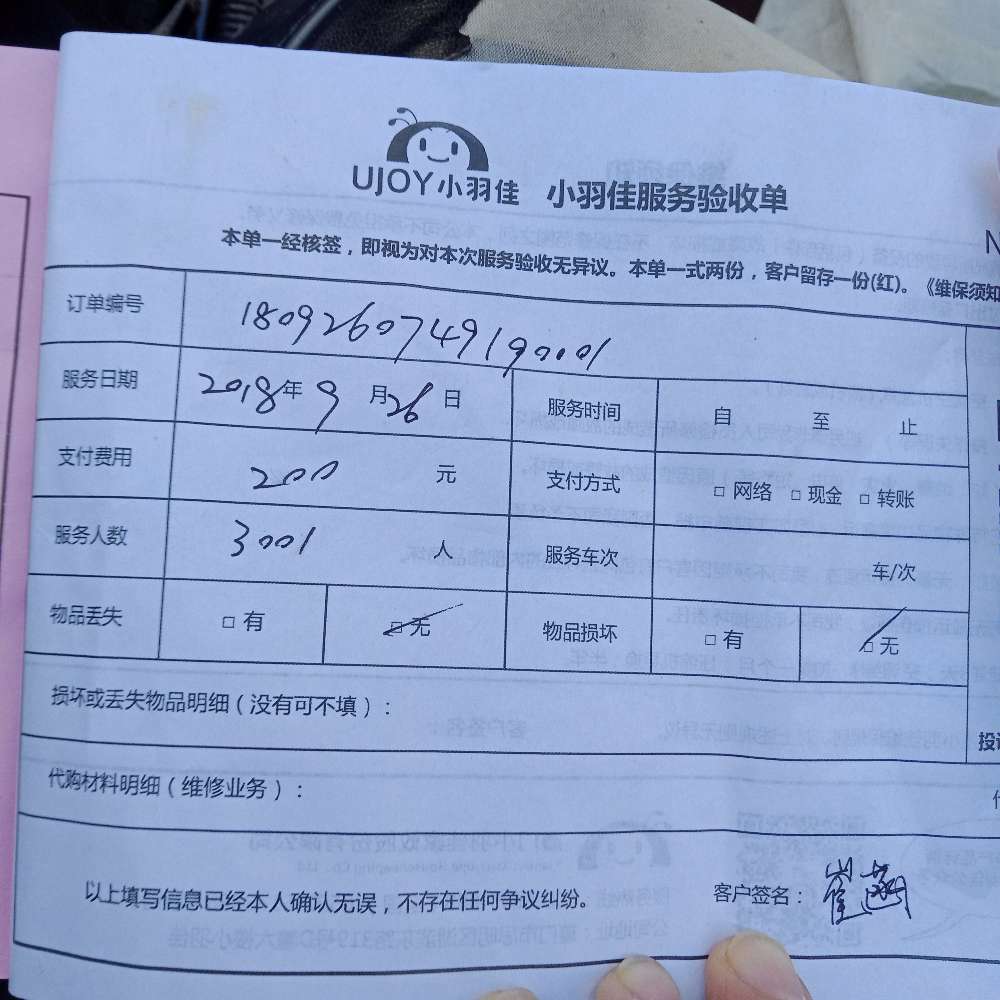 UJOY小羽佳 小羽佳服务验收单
N
本单一经核签，即视为对本次服务验收无异议。本单一式两份，客户留存一份(红)。《维保须知
订单编号 1809260749190001
服务日期 2018年 9 月 26 日 服务时间 自 至 止
支付费用 200 元 支付方式 □ 网络 □ 现金 □ 转账
服务人数 3001 人 服务车次 车/次
物品丢失 □ 有 □ 无 物品损坏 □ 有 □ 无
损坏或丢失物品明细（没有可不填）：
代购材料明细（维修业务）：
以上填写信息已经本人确认无误，不存在任何争议纠纷。 客户签名：